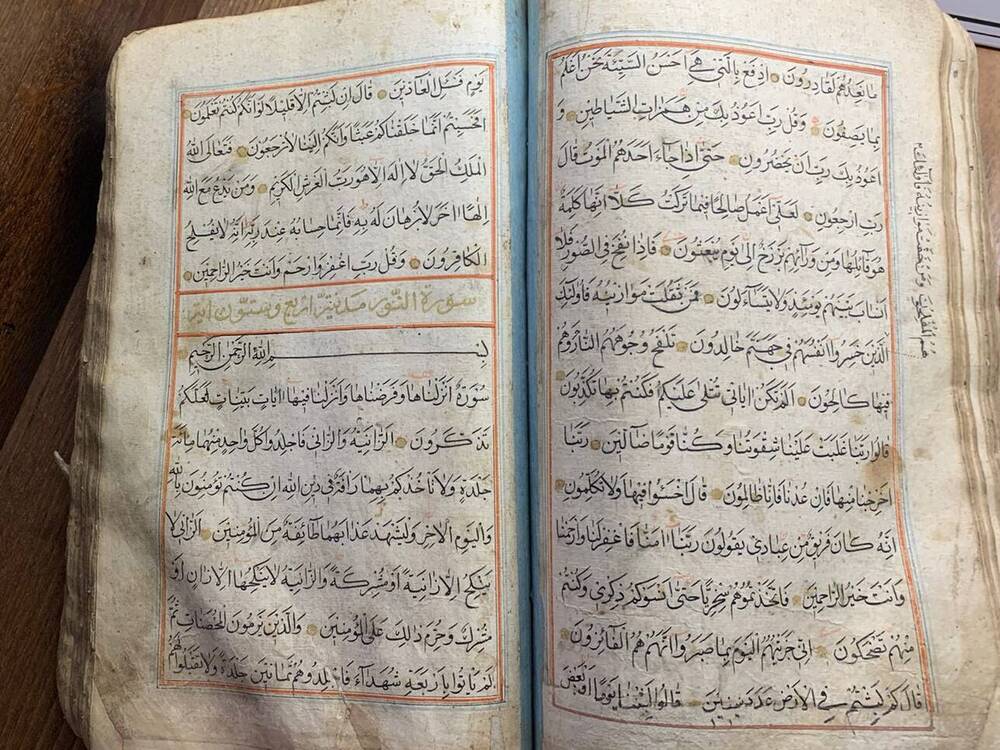 ما نعدهم لقادرون ادفع بالتي هي احسن السيئة نحن اعلم
بما يصفون وقل رب اعوذ بك من همزات الشياطين و
اعوذ بك رب ان يحضرون حتى اذا جاء احدهم الموت قال
رب ارجعون لعلى اعمل صالحا فيما تركت كلا انها كلمة
هو قائلها ومن ورائهم برزخ الى يوم يبعثون فاذا نفخ في الصور فلا
انساب بينهم يومئذ ولا يتساءلون فمن ثقلت موازينه فاولئك
الذين خسروا انفسهم في جهنم خالدون تلفح وجوههم النار وهم
فيها كالحون الم تكن اياتى تتلى عليكم فكنتم بها تكذبون
قالوا ربنا غلبت علينا شقوتنا وكنا قوما ضالين ربنا
اخرجنا منها فان عدنا فانا ظالمون قال اخسؤا فيها ولا تكلمون
انه كان فريق من عبادى يقولون ربنا امنا فاغفر لنا وارحمنا
وانت خير الراحمين فاتخذتموهم سخريا حتى انسوكم ذكرى وكنتم
منهم تضحكون انى جزيتهم اليوم بما صبروا انهم هم الفائزون
قال كم لبثتم في الارض عدد سنين قالوا لبثنا يوما او بعض
هم المفلحون ومن خفت موازينه فاولئك
يوم فسئل العادين قال ان لبثتم الا قليلا لو انكم كنتم تعلمون
افحسبتم انما خلقناكم عبثا وانكم الينا لا ترجعون فتعالى الله
الملك الحق لا اله الا هو رب العرش الكريم ومن يدع مع الله
الها اخر لا برهان له به فانما حسابه عند ربه انه لا يفلح
الكافرون وقل رب اغفر وارحم وانت خير الراحمين
سورة النور مدنية اربع وستون اية
بسم الله الرحمن الرحيم
سورة انزلناها وفرضناها وانزلنا فيها ايات بينات لعلكم
تذكرون الزانية والزانى فاجلدوا كل واحد منهما مائة
جلدة ولا تاخذكم بهما رافة في دين الله ان كنتم تؤمنون بالله
واليوم الاخر وليشهد عذابهما طائفة من المؤمنين الزانى لا
ينكح الا زانية او مشركة والزانية لا ينكحها الا زان او
مشرك وحرم ذلك على المؤمنين والذين يرمون المحصنات ثم
لم ياتوا باربعة شهداء فاجلدوهم ثمانين جلدة ولا تقبلوا لهم